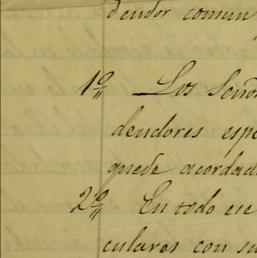 dendor comun
1º Los Seño
dendores esp
quede acordad
2º En todo en
culares con su